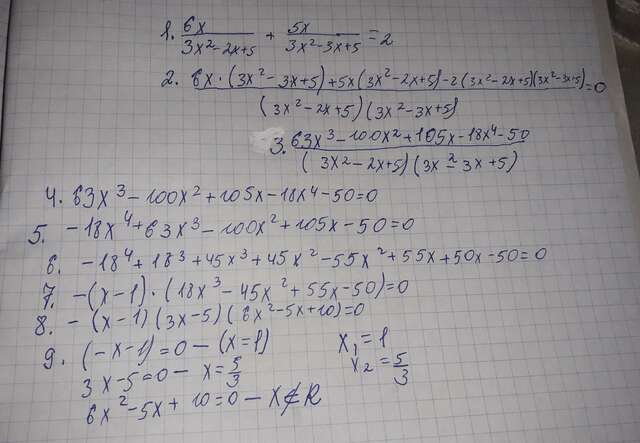 1. 6x/(3x²-2x+5) + 5x/(3x²-3x+5) = 2
2. (6x·(3x²-3x+5)+5x(3x²-2x+5)-2(3x²-2x+5)(3x²-3x+5))/((3x²-2x+5)(3x²-3x+5)) = 0
3. (63x³-100x²+105x-18x⁴-50)/((3x²-2x+5)(3x²-3x+5))
4. 63x³-100x²+105x-18x⁴-50=0
5. -18x⁴+63x³-100x²+105x-50=0
6. -18⁴+18³+45x³+45x²-55x²+55x+50x-50=0
7. -(x-1)·(18x³-45x²+55x-50)=0
8. -(x-1)(3x-5)(6x²-5x+10)=0
9. (-x-1)=0-(x=1) x₁=1
3x-5=0-x=5/3 x₂=5/3
6x²-5x+10=0-x∉R